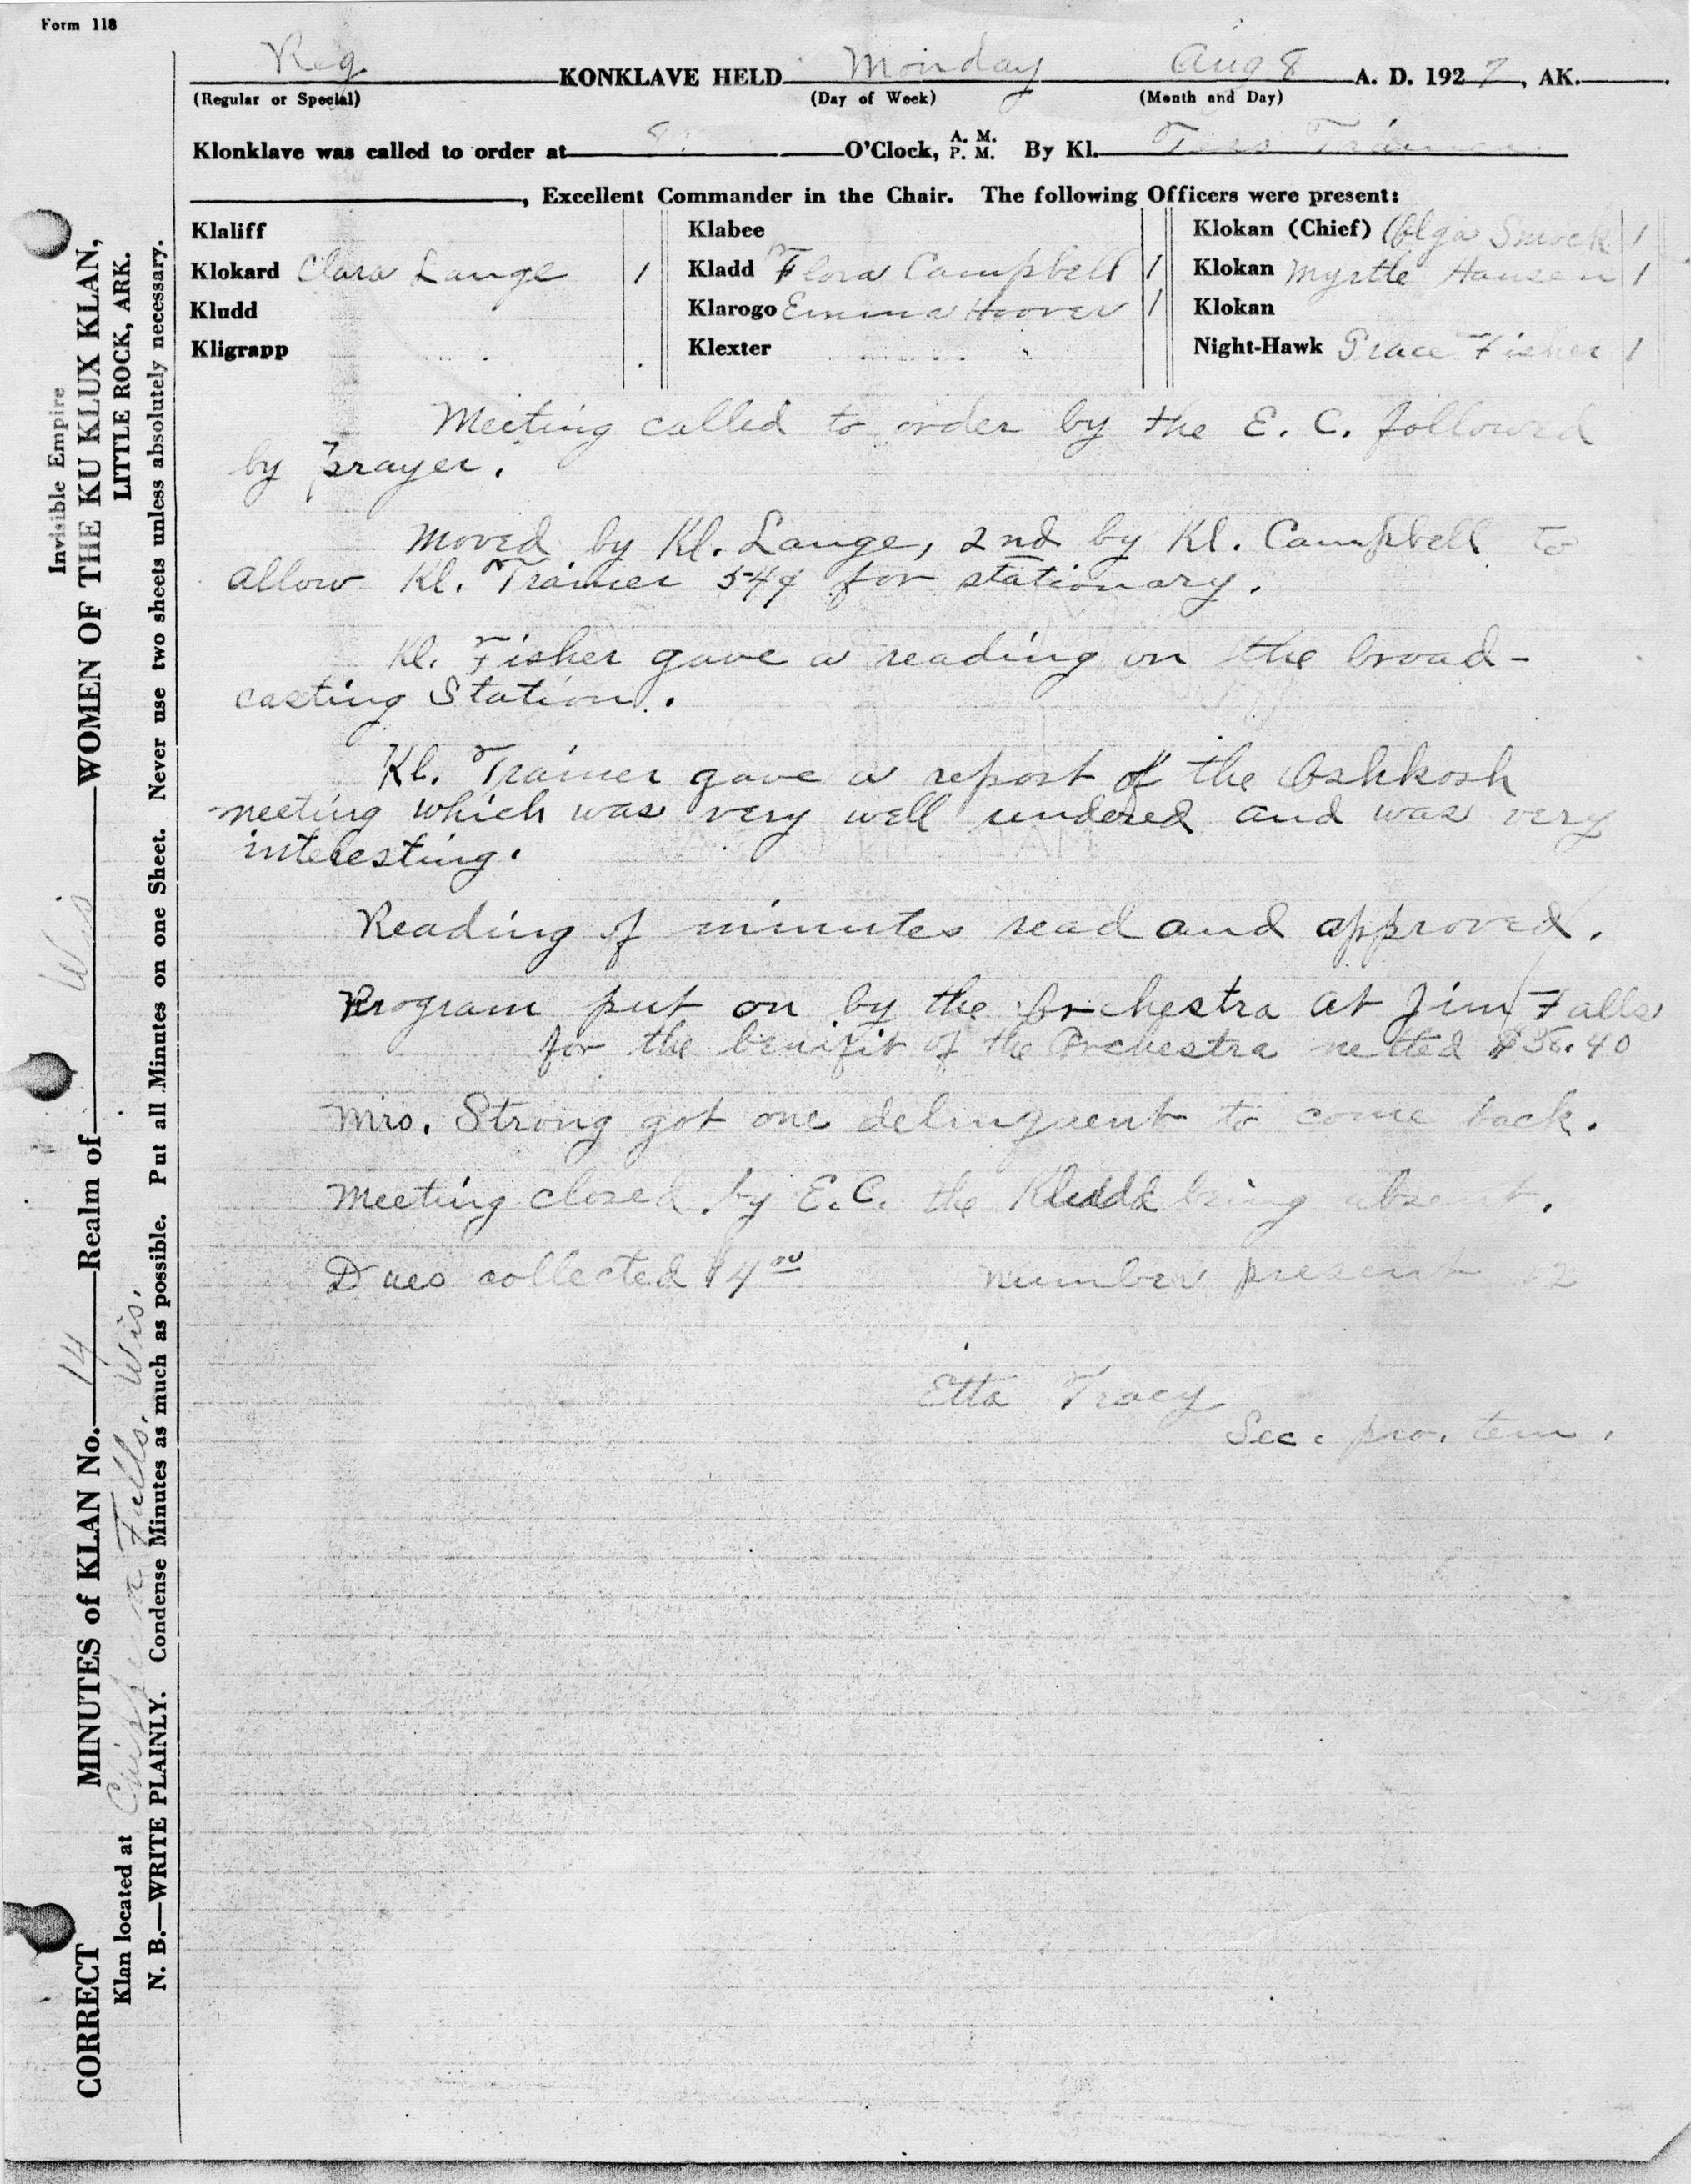 Form 118
Reg KONKLAVE HELD Monday Aug 8 A. D. 1927, AK.
(Regular or Special) (Day of Week) (Month and Day)
Klonklave was called to order at 8: O'Clock, A. M. P. M. By Kl. Trainer
, Excellent Commander in the Chair. The following Officers were present:
Klaliff Klabee Klokan (Chief) Olga Smock 1
Klokard Clara Lange 1 Kladd Flora Campbell 1 Klokan Myrtle Hansen 1
Kludd Klarogo Emma Hoover 1 Klokan
Kligrapp Klexter Night-Hawk Grace Fisher 1
Meeting called to order by the E. C. followed
by prayer.
Moved by Kl. Lange, 2nd by Kl. Campbell to
allow Kl. Trainer 54¢ for stationary.
Kl. Fisher gave a reading on the broad-
casting Station.
Kl. Trainer gave a report of the Oshkosh
meeting which was very well rendered and was very
interesting.
Reading of minutes read and approved.
Program put on by the Orchestra at Jim Falls
for the benifit of the Orchestra netted $36.40
Mrs. Strong got one delinquent to come back.
Meeting closed by E.C. the Kludd being absent.
Dues collected $4.00 number present 12
Etta Tracy
Sec. pro. tem.
Invisible Empire
CORRECT MINUTES of KLAN No. 14 Realm of Wis WOMEN OF THE KU KLUX KLAN,
Klan located at Chippewa Falls, Wis. LITTLE ROCK, ARK.
N. B.—WRITE PLAINLY. Condense Minutes as much as possible. Put all Minutes on one Sheet. Never use two sheets unless absolutely necessary.